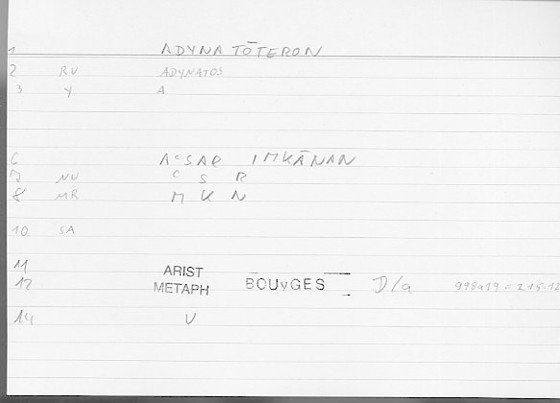 1 ADYNATŌTERON
2 RV ADYNATOS
3 Y A
6 AᶜSAR IMKĀNAN
7 NU C S R
8 MR M K N
10 SA
11 ARIST
12 METAPH BOUyGES D/a 998a19 = 215.12
14 V